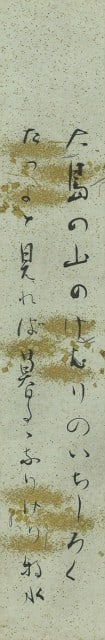 大島の山のけむりのいちじろく
たつよと見れば暮るゝなりけり 牧水